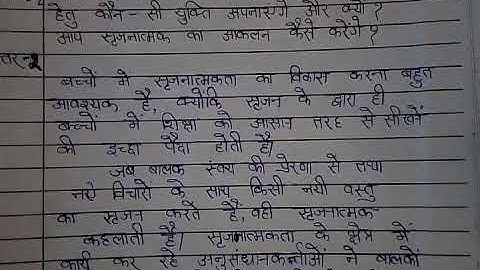 हेतु कौन - सी युक्ति अपनाएंगे और क्यों ?
आप सृजनात्मक का आकलन कैसे करेंगे ?
तर-2
बच्चों में सृजनात्मकता का विकास करना बहुत
आवश्यक है, क्योंकि सृजन के द्वारा ही
बच्चों में शिक्षा को आसान तरह से सीखने
की इच्छा पैदा होती है।
जब बालक स्वंय की प्रेरणा से तथा
नऐ विचारो के साथ किसी नयी वस्तु
का सृजन करते हैं, वही सृजनात्मक
कहलाती है। सृजनात्मकता के क्षेत्र में
कार्य कर रहे अनुसंधानकर्त्ताओं ने बालकों